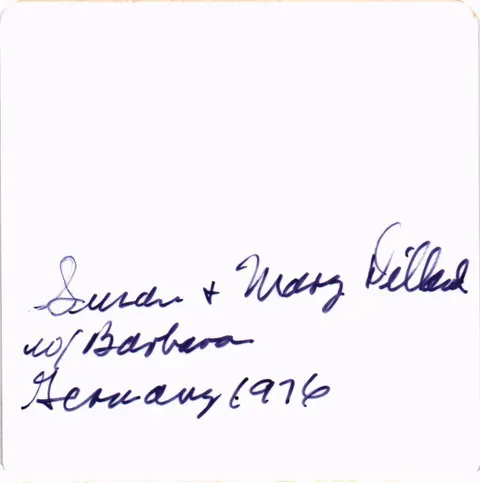 Susan + Mary Dillard
w/ Barbara
Germany 1976